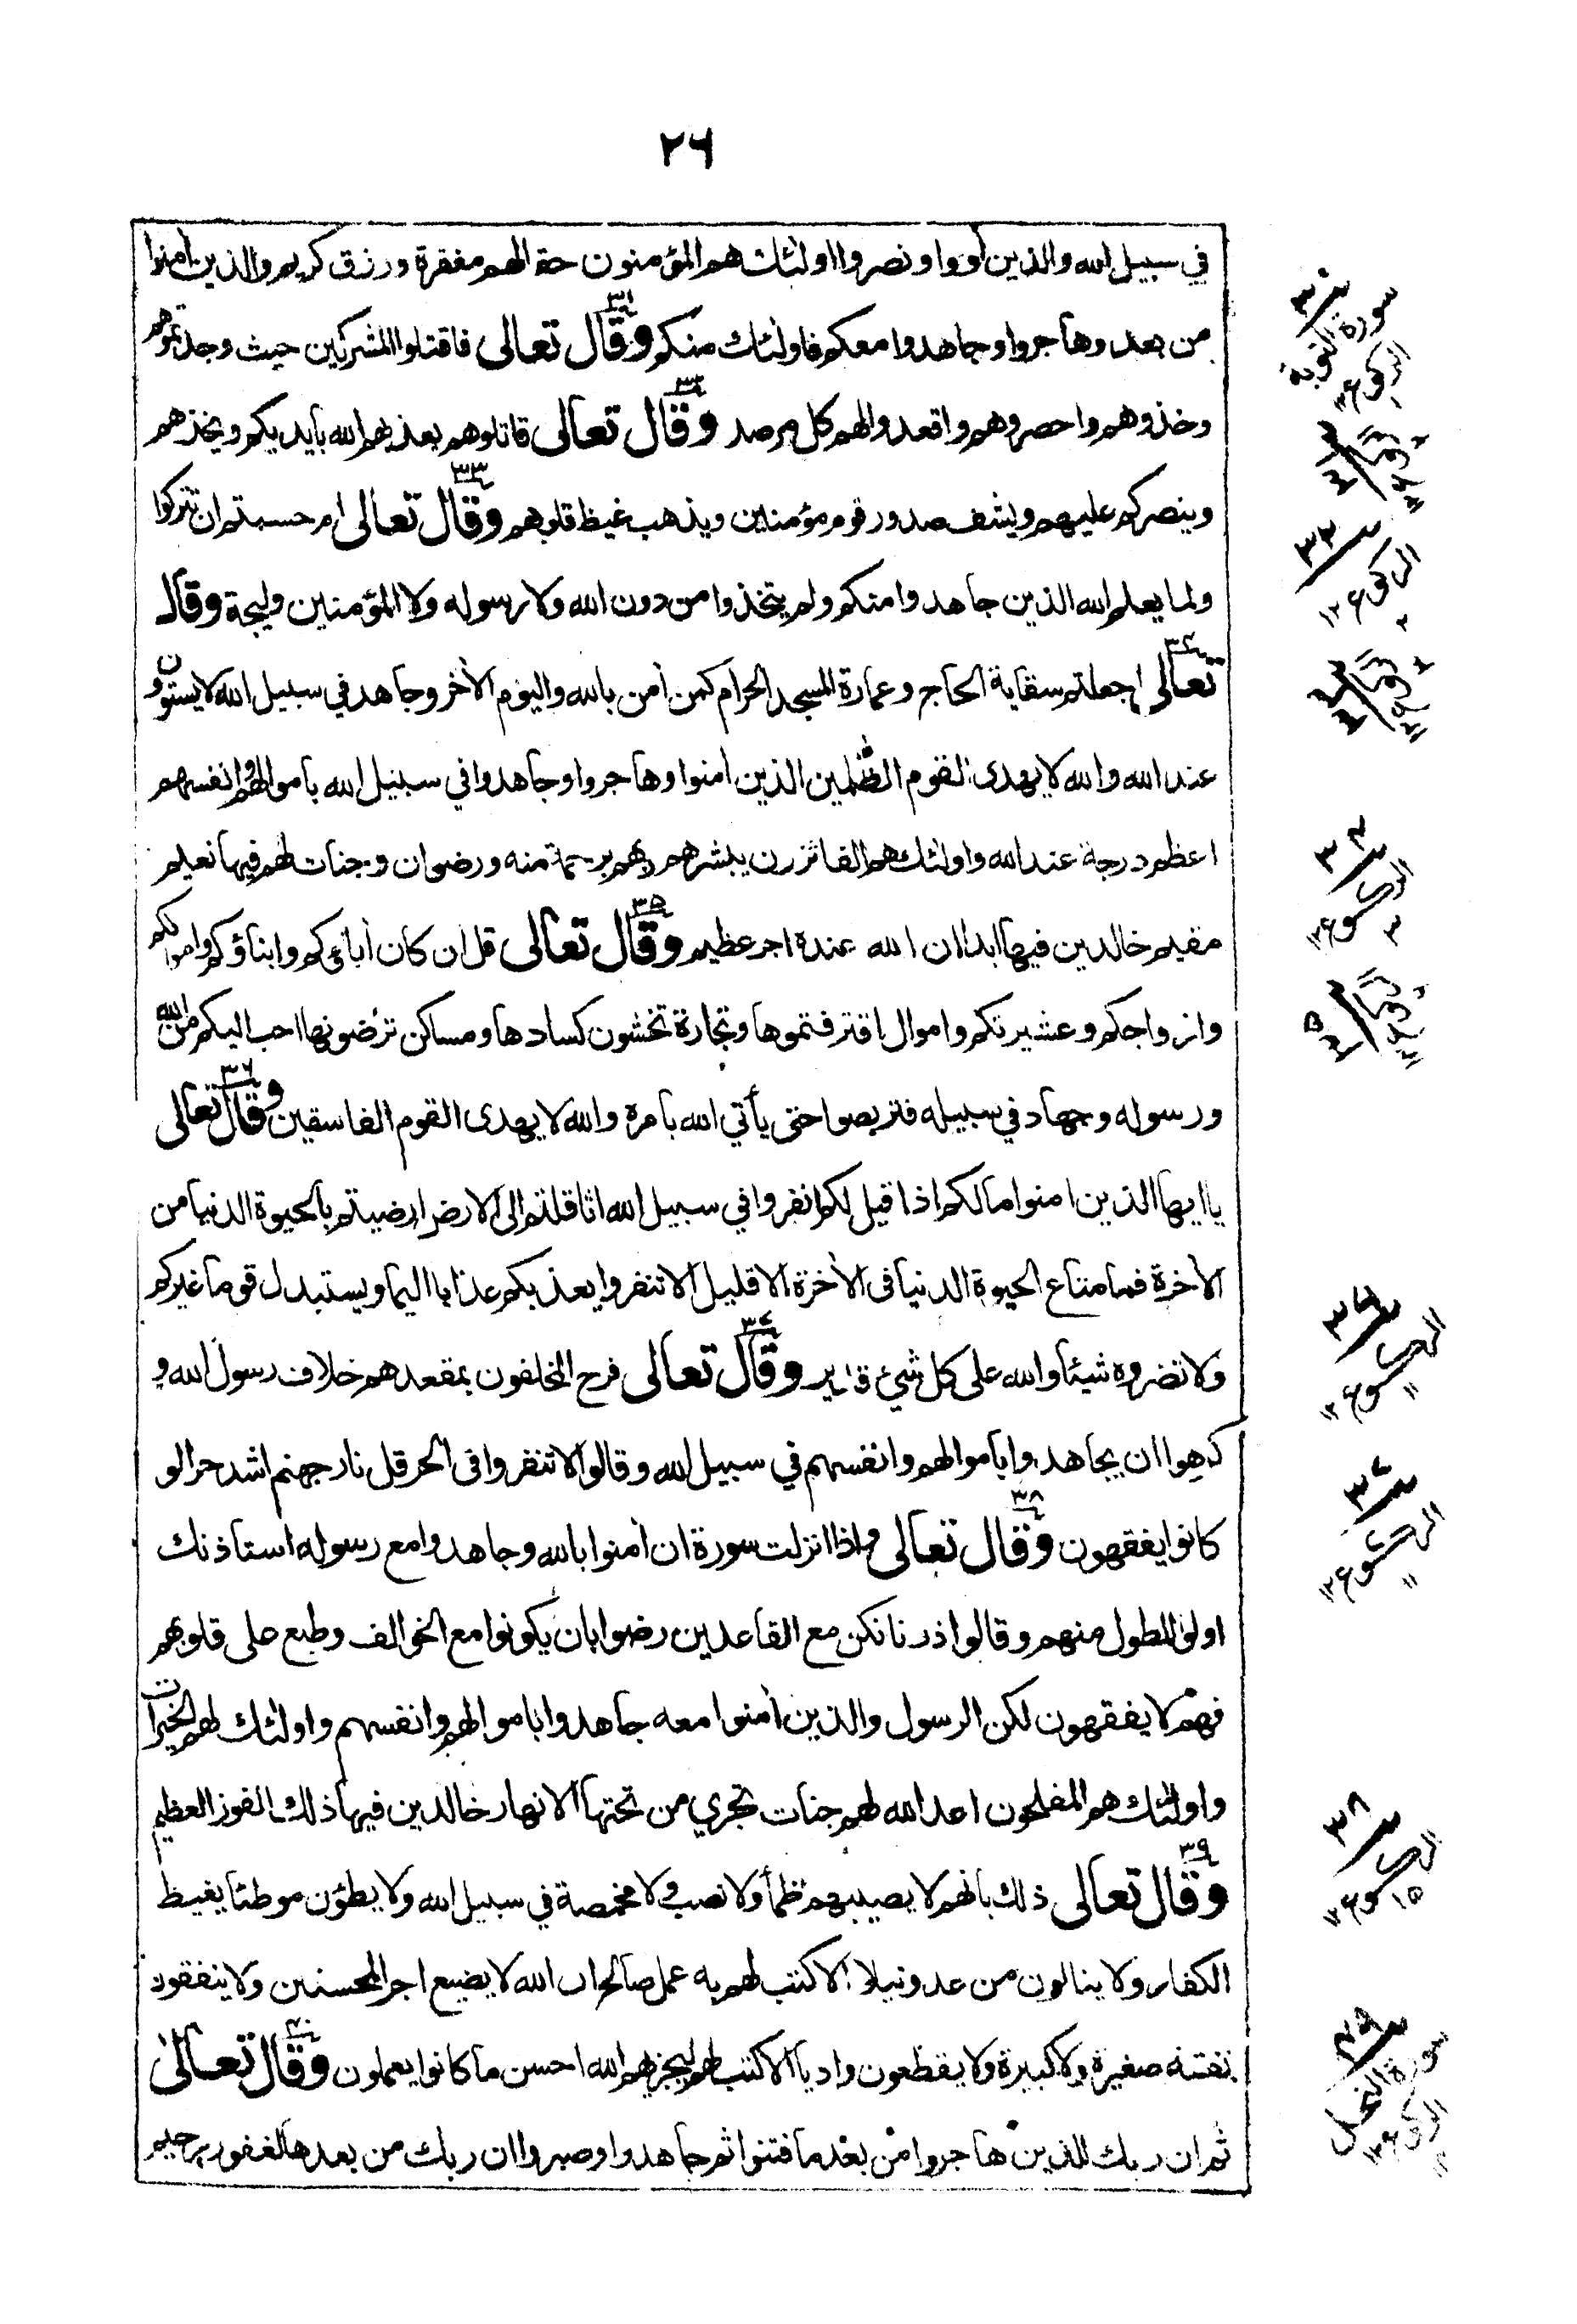 ٢٦
في سبيل الله والذين آووا ونصروا اولئك هم المؤمنون حقا لهم مغفرة ورزق كريم والذين آمنوا
من بعد وهاجروا وجاهدوا معكم فاولئك منكم وقال تعالى ٣١ فاقتلوا المشركين حيث وجدتموهم
وخذوهم واحصروهم واقعدوا لهم كل مرصد وقال تعالى ٣٢ قاتلوهم يعذبهم الله بأيديكم ويخذهم
وينصركم عليهم ويشف صدور قوم مؤمنين ويذهب غيظ قلوبهم وقال تعالى ٣٣ ام حسبتم ان تتركوا
ولما يعلم الله الذين جاهدوا منكم ولم يتخذوا من دون الله ولا رسوله ولا المؤمنين وليجة وقال
تعالى ٣٤ اجعلتم سقاية الحاج وعمارة المسجد الحرام كمن آمن بالله واليوم الآخر وجاهد في سبيل الله لا يستوون
عند الله والله لا يهدى القوم الظلمين الذين امنوا وهاجروا وجاهدوا في سبيل الله باموالهم وانفسهم
اعظم درجة عند الله واولئك هم الفائزون يبشرهم ربهم برحمة منه ورضوان وجنات لهم فيها نعيم
مقيم خالدين فيها ابدا ان الله عنده اجر عظيم وقال تعالى ٣٥ قل ان كان آبائكم وابناؤكم واموالكم
وازواجكم وعشيرتكم واموال اقترفتموها وتجارة تخشون كسادها ومساكن ترضونها احب اليكم من الله
ورسوله وجهاد في سبيله فتربصوا حتى يأتي الله بامره والله لا يهدى القوم الفاسقين وقال تعالى ٣٦
يا ايها الذين امنوا مالكم اذا قيل لكم انفروا في سبيل الله اثاقلتم الى الارض ارضيتم بالحيوة الدنيا من
الآخرة فما متاع الحيوة الدنيا فى الآخرة الا قليل الا تنفروا يعذبكم عذابا اليما ويستبدل قوما غيركم
ولا تضروه شيئا والله على كل شيئ قدير وقال تعالى ٣٧ فرح المخلفون بمقعدهم خلاف رسول الله و
كرهوا ان يجاهدوا باموالهم وانفسهم في سبيل الله وقالوا لا تنفروا فى الحر قل نار جهنم اشد حرا لو
كانوا يفقهون وقال تعالى ٣٨ واذا انزلت سورة ان آمنوا بالله وجاهدوا مع رسوله استاذنك
اولوا الطول منهم وقالوا ذرنا نكن مع القاعدين رضوا بان يكونوا مع الخوالف وطبع على قلوبهم
فهم لا يفقهون لكن الرسول والذين آمنوا معه جاهدوا باموالهم وانفسهم واولئك لهم الخيرات
واولئك هم المفلحون اعد الله لهم جنات تجري من تحتها الانهار خالدين فيها ذلك الفوز العظيم
وقال تعالى ٣٩ ذلك بانهم لا يصيبهم ظمأ ولا نصب ولا مخمصة في سبيل الله ولا يطؤن موطئا يغيظ
الكفار ولا ينالون من عدو نيلا الا كتب لهم به عمل صالح ان الله لا يضيع اجر المحسنين ولا ينفقون
نفقة صغيرة ولا كبيرة ولا يقطعون واديا الا كتب لهم ليجزيهم الله احسن ما كانوا يعملون وقال تعالىٰ ٤٠
ثم ان ربك للذين هاجروا من بعد ما فتنوا ثم جاهدوا وصبروا ان ربك من بعدها لغفور رحيم
سورة التوبة
الركوع
٣٣
الركوع
٣٤
الركوع
٣٦
الركوع
٣٧
الركوع
٣٨
الركوع
٣٩
سورة النحل
الركوع